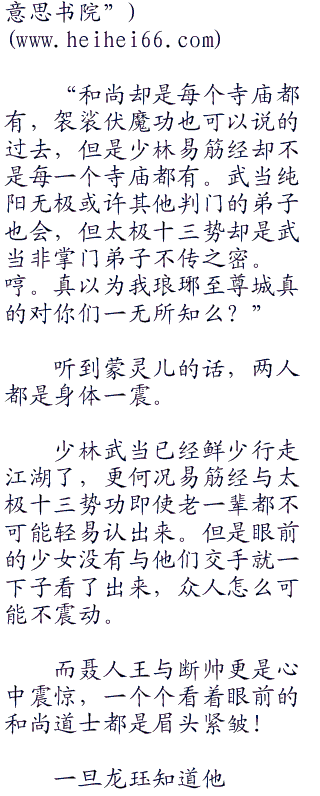 意思书院”)
(www.heihei66.com)
“和尚却是每个寺庙都
有，袈裟伏魔功也可以说的
过去，但是少林易筋经却不
是每一个寺庙都有。武当纯
阳无极或许其他判门的弟子
也会，但太极十三势却是武
当非掌门弟子不传之密。
哼。真以为我琅琊至尊城真
的对你们一无所知么？”
听到蒙灵儿的话，两人
都是身体一震。
少林武当已经鲜少行走
江湖了，更何况易筋经与太
极十三势功即使老一辈都不
可能轻易认出来。但是眼前
的少女没有与他们交手就一
下子看了出来，众人怎么可
能不震动。
而聂人王与断帅更是心
中震惊，一个个看着眼前的
和尚道士都是眉头紧皱！
一旦龙珏知道他